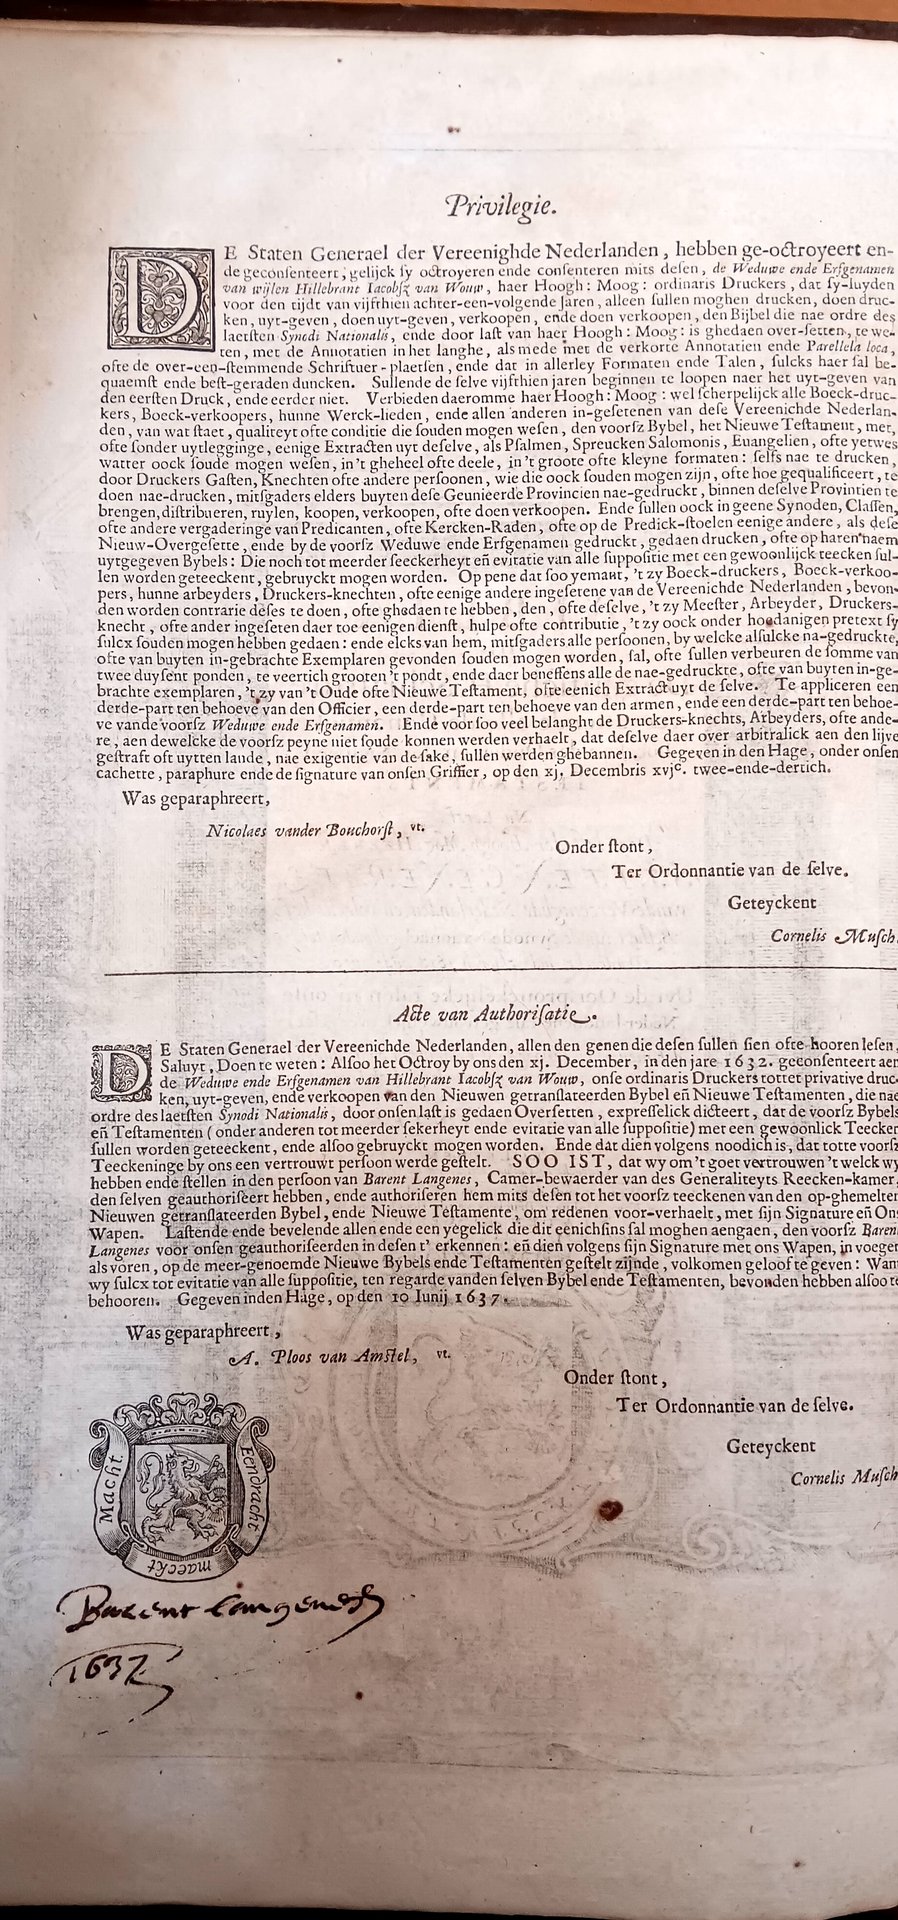 Privilegie.
DE Staten Generael der Vereenighde Nederlanden, hebben ge-octroyeert en-
de geconsenteert, gelijck sy octroyeren ende consenteren mits desen, de Weduwe ende Erfgenamen
van wijlen Hillebrant Iacobsz van Wouw, haer Hoogh: Moog: ordinaris Druckers, dat sy-luyden
voor den tijdt van vijfthien achter-een-volgende Jaren, alleen sullen moghen drucken, doen druc-
ken, uyt-geven, doen uyt-geven, verkoopen, ende doen verkoopen, den Bijbel die nae ordre des
laetsten Synodi Nationalis, ende door last van haer Hoogh: Moog: is ghedaen over-setten, te we-
ten, met de Annotatien in het langhe, als mede met de verkorte Annotatien ende Parellela loca,
ofte de over-een-stemmende Schriftuer-plaetsen, ende dat in allerley Formaten ende Talen, sulcks haer sal be-
quaemst ende best-geraden duncken. Sullende de selve vijfthien jaren beginnen te loopen naer het uyt-geven van
den eersten Druck, ende eerder niet. Verbieden daeromme haer Hoogh: Moog: wel scherpelijck alle Boeck-druc-
kers, Boeck-verkoopers, hunne Werck-lieden, ende allen anderen in-gesetenen van dese Vereenichde Nederlan-
den, van wat staet, qualiteyt ofte conditie die souden mogen wesen, den voorsz Bybel, het Nieuwe Testament, met,
ofte sonder uytlegginge, eenige Extracten uyt deselve, als Psalmen, Spreucken Salomonis, Euangelien, ofte yetwes
watter oock soude mogen wesen, in't gheheel ofte deele, in't groote ofte kleyne formaten: selfs nae te drucken,
door Druckers Gasten, Knechten ofte andere persoonen, wie die oock souden mogen zijn, ofte hoe gequalificeert, te
doen nae-drucken, mitsgaders elders buyten dese Geunieerde Provincien nae-gedruckt, binnen deselve Provintien te
brengen, distribueren, ruylen, koopen, verkoopen, ofte doen verkoopen. Ende sullen oock in geene Synoden, Classen,
ofte andere vergaderinge van Predicanten, ofte Kercken-Raden, ofte op de Predick-stoelen eenige andere, als dese
Nieuw-Overgesette, ende by de voorsz Weduwe ende Erfgenamen gedruckt, gedaen drucken, ofte op haren naem
uytgegeven Bybels: Die noch tot meerder seeckerheyt eñ evitatie van alle suppositie met een gewoonlijck teecken sul-
len worden geteeckent, gebruyckt mogen worden. Op pene dat soo yemant, 't zy Boeck-druckers, Boeck-verkoo-
pers, hunne arbeyders, Druckers-knechten, ofte eenige andere ingesetene van de Vereenichde Nederlanden, bevon-
den worden contrarie deses te doen, ofte ghedaen te hebben, den, ofte deselve, 't zy Meester, Arbeyder, Druckers-
knecht, ofte ander ingeseten daer toe eenigen dienst, hulpe ofte contributie, 't zy oock onder hoedanigen pretext sy
sulcx souden mogen hebben gedaen: ende elcks van hem, mitsgaders alle persoonen, by welcke alsulcke na-gedruckte,
ofte van buyten in-gebrachte Exemplaren gevonden souden mogen worden, sal, ofte sullen verbeuren de somme van
twee duysent ponden, te veertich grooten 't pondt, ende daer beneffens alle de nae-gedruckte, ofte van buyten in-ge-
brachte exemplaren, 't zy van 't Oude ofte Nieuwe Testament, ofte eenich Extract uyt de selve. Te appliceren een
derde-part ten behoeve van den Officier, een derde-part ten behoeve van den armen, ende een derde-part ten behoe-
ve vande voorsz Weduwe ende Erfgenamen. Ende voor soo veel belanght de Druckers-knechts, Arbeyders, ofte ande-
re, aen dewelcke de voorsz peyne niet soude konnen werden verhaelt, dat deselve daer over arbitralick aen den lijve
gestraft oft uytten lande, nae exigentie van de sake, sullen werden ghebannen. Gegeven in den Hage, onder onsen
cachette, paraphure ende de signature van onsen Griffier, op den xj. Decembris xvjc. twee-ende-dertich.
Was geparaphreert,
Nicolaes vander Bouchorst, vt.
Onder stont,
Ter Ordonnantie van de selve.
Geteyckent
Cornelis Musch.
Acte van Authorisatie.
DE Staten Generael der Vereenichde Nederlanden, allen den genen die desen sullen sien ofte hooren lesen,
Saluyt, Doen te weten: Alsoo het Octroy by ons den xj. December, in den jare 1632. geconsenteert aen
de Weduwe ende Erfgenamen van Hillebrant Iacobsz van Wouw, onse ordinaris Druckers tottet privative druc-
ken, uyt-geven, ende verkoopen van den Nieuwen getranslateerden Bybel eñ Nieuwe Testamenten, die nae
ordre des laetsten Synodi Nationalis, door onsen last is gedaen Oversetten, expresselick dicteert, dat de voorsz Bybels
eñ Testamenten (onder anderen tot meerder sekerheyt ende evitatie van alle suppositie) met een gewoonlick Teecken
sullen worden geteeckent, ende alsoo gebruyckt mogen worden. Ende dat dien volgens noodich is, dat totte voorsz
Teeckeninge by ons een vertrouwt persoon werde gestelt. SOO IST, dat wy om 't goet vertrouwen 't welck wy
hebben ende stellen in den persoon van Barent Langenes, Camer-bewaerder van des Generaliteyts Reecken-kamer,
den selven geauthoriseert hebben, ende authoriseren hem mits desen tot het voorsz teeckenen van den op-ghemelten
Nieuwen getranslateerden Bybel, ende Nieuwe Testamente, om redenen voor-verhaelt, met sijn Signature eñ Ons
Wapen. Lastende ende bevelende allen ende een yegelick die dit eenichsins sal moghen aengaen, den voorsz Barent
Langenes voor onsen geauthoriseerden in desen t' erkennen: eñ dien volgens sijn Signature met ons Wapen, in voegen
als voren, op de meer-genoemde Nieuwe Bybels ende Testamenten gestelt zijnde, volkomen geloof te geven: Want
wy sulcx tot evitatie van alle suppositie, ten regarde vanden selven Bybel ende Testamenten, bevonden hebben alsoo te
behooren. Gegeven inden Hage, op den 10 Iunij 1637.
Was geparaphreert,
A. Ploos van Amstel, vt.
Onder stont,
Ter Ordonnantie van de selve.
Geteyckent
Cornelis Musch
Eendracht
maeckt
Macht
Barent Langenes
1637